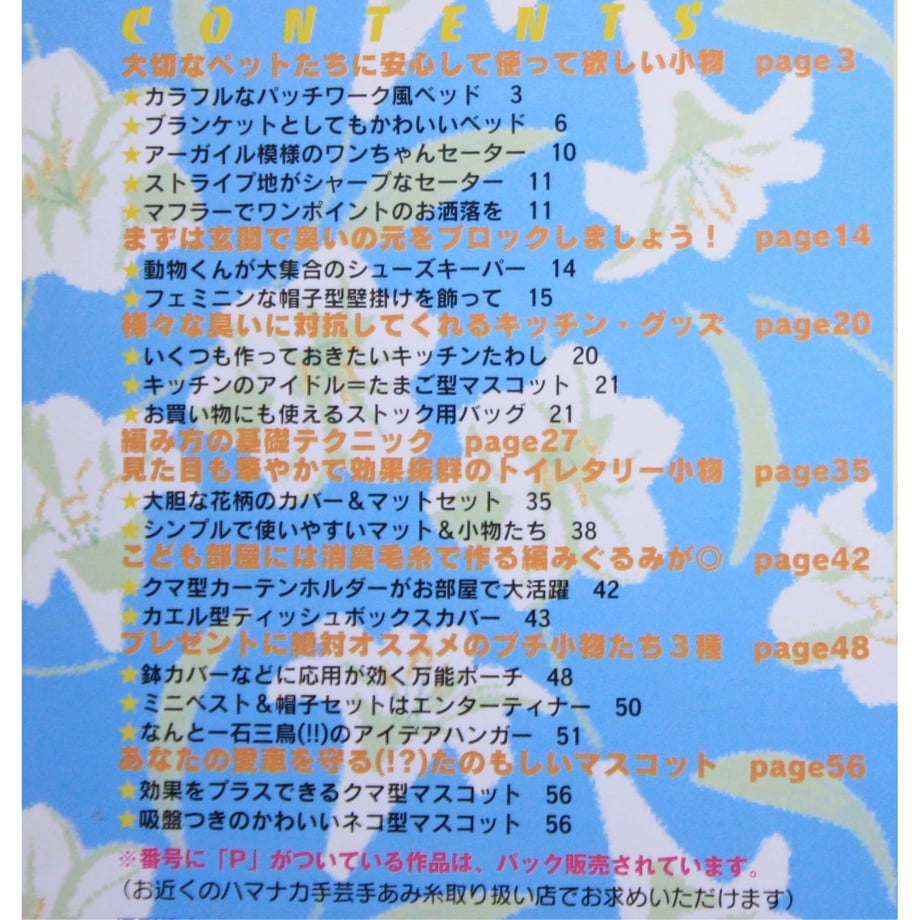 CONTENTS
大切なペットたちに安心して使って欲しい小物　page3
★カラフルなパッチワーク風ベッド　3
★ブランケットとしてもかわいいベッド　6
★アーガイル模様のワンちゃんセーター　10
★ストライプ地がシャープなセーター　11
★マフラーでワンポイントのお洒落を　11
まずは玄関で臭いの元をブロックしましょう！　page14
★動物くんが大集合のシューズキーパー　14
★フェミニンな帽子型壁掛けを飾って　15
様々な臭いに対抗してくれるキッチン・グッズ　page20
★いくつも作っておきたいキッチンたわし　20
★キッチンのアイドル＝たまご型マスコット　21
★お買い物にも使えるストック用バッグ　21
編み方の基礎テクニック　page27
見た目も華やかで効果抜群のトイレタリー小物　page35
★大胆な花柄のカバー＆マットセット　35
★シンプルで使いやすいマット＆小物たち　38
こども部屋には消臭毛糸で作る編みぐるみが◎　page42
★クマ型カーテンホルダーがお部屋で大活躍　42
★カエル型ティッシュボックスカバー　43
プレゼントに絶対オススメのプチ小物たち３種　page48
★鉢カバーなどに応用が効く万能ポーチ　48
★ミニベスト＆帽子セットはエンターティナー　50
★なんと一石三鳥(!!)のアイデアハンガー　51
あなたの愛車を守る(!?)たのもしいマスコット　page56
★効果をプラスできるクマ型マスコット　56
★吸盤つきのかわいいネコ型マスコット　56
※番号に「P」がついている作品は、パック販売されています。
（お近くのハマナカ手芸手あみ糸取り扱い店でお求めいただけます）